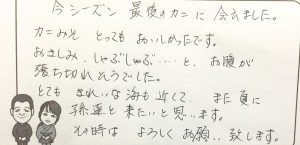 今シーズン 最後のカニに 会えました。
カニみそ とっても おいしかったです。
おさしみ、しゃぶしゃぶ… と、お腹が
張ち切れそうでした。
とても きれいな海も近くて、また夏に
孫達と来たいと思います。
その時は よろしくお願い致します。